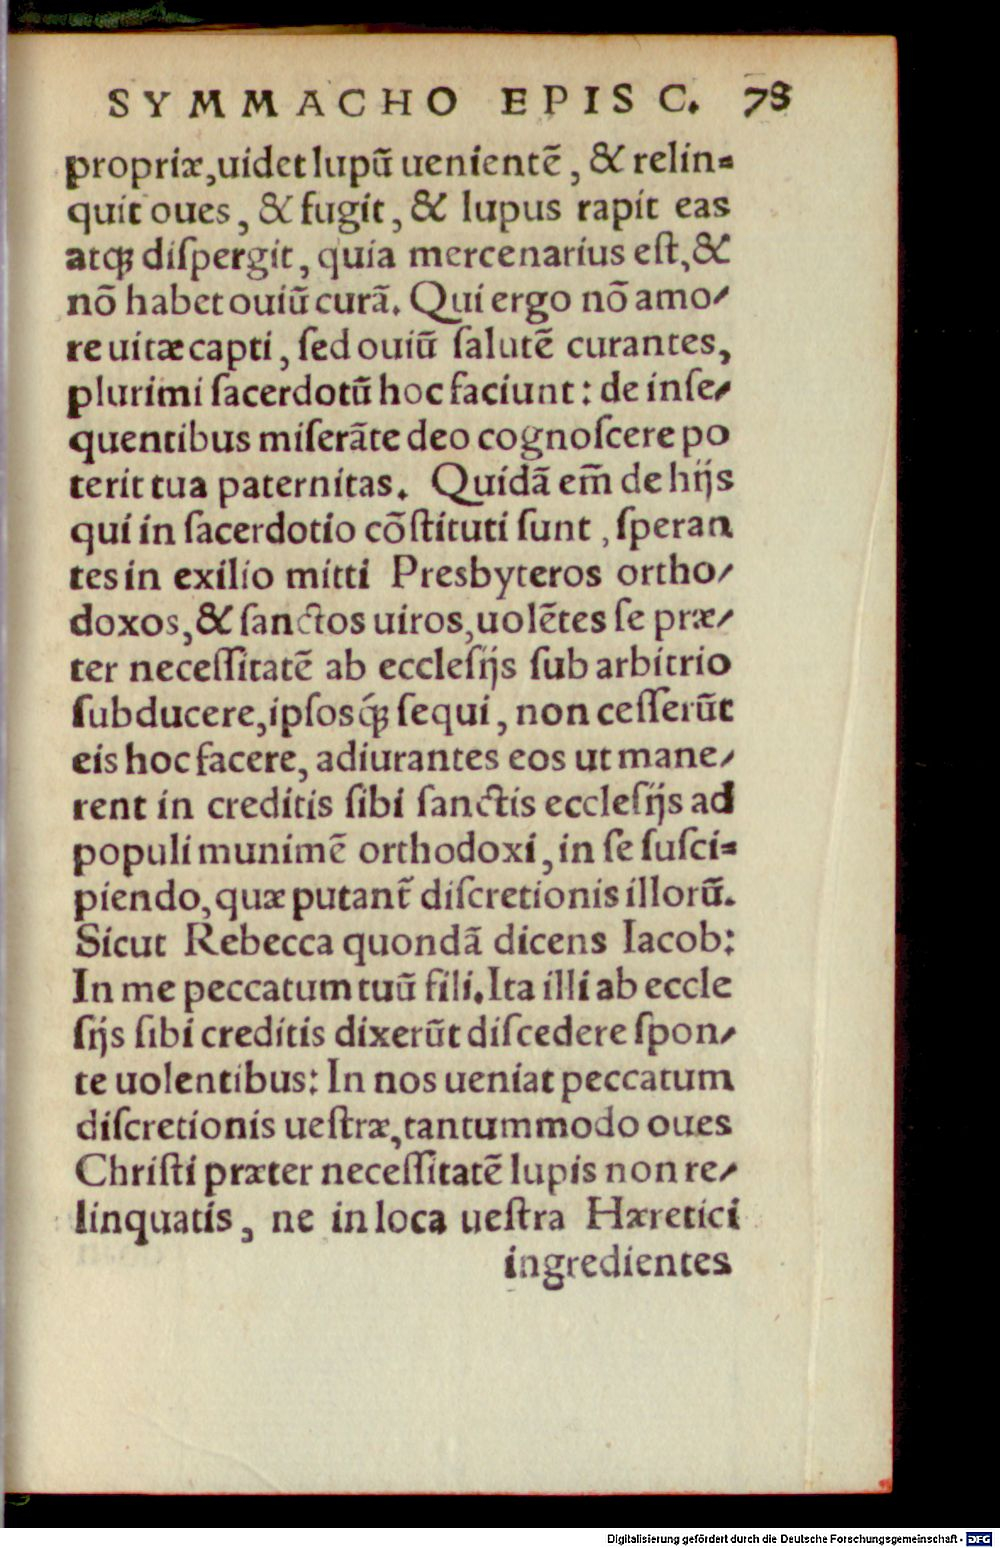 SYMMACHO EPISC. 78
propriæ, uidet lupũ uenientẽ, & relin-
quit oues, & fugit, & lupus rapit eas
atq́ꝫ diſpergit, quia mercenarius eſt, &
nõ habet ouiũ curã. Qui ergo nõ amo-
re uitæ capti, ſed ouiũ ſalutẽ curantes,
plurimi ſacerdotũ hoc faciunt: de inſe-
quentibus miſerãte deo cognoſcere po
terit tua paternitas. Quidã em̃ de hijs
qui in ſacerdotio cõſtituti ſunt, ſperan
tes in exilio mitti Presbyteros ortho-
doxos, & ſanctos uiros, uolẽtes ſe præ-
ter neceſſitatẽ ab eccleſijs ſub arbitrio
ſubducere, ipſosq́ꝫ ſequi, non ceſſerũt
eis hoc facere, adiurantes eos ut mane-
rent in creditis ſibi ſanctis eccleſijs ad
populi munimẽ orthodoxi, in ſe ſuſci-
piendo, quæ putant̃ diſcretionis illorũ.
Sicut Rebecca quondã dicens Iacob:
In me peccatum tuũ fili. Ita illi ab eccle
ſijs ſibi creditis dixerũt diſcedere ſpon-
te uolentibus: In nos ueniat peccatum
diſcretionis ueſtræ, tantummodo oues
Chriſti præter neceſſitatẽ lupis non re-
linquatis, ne in loca ueſtra Hæretici
ingredientes
Digitalisierung gefördert durch die Deutsche Forschungsgemeinschaft - DFG